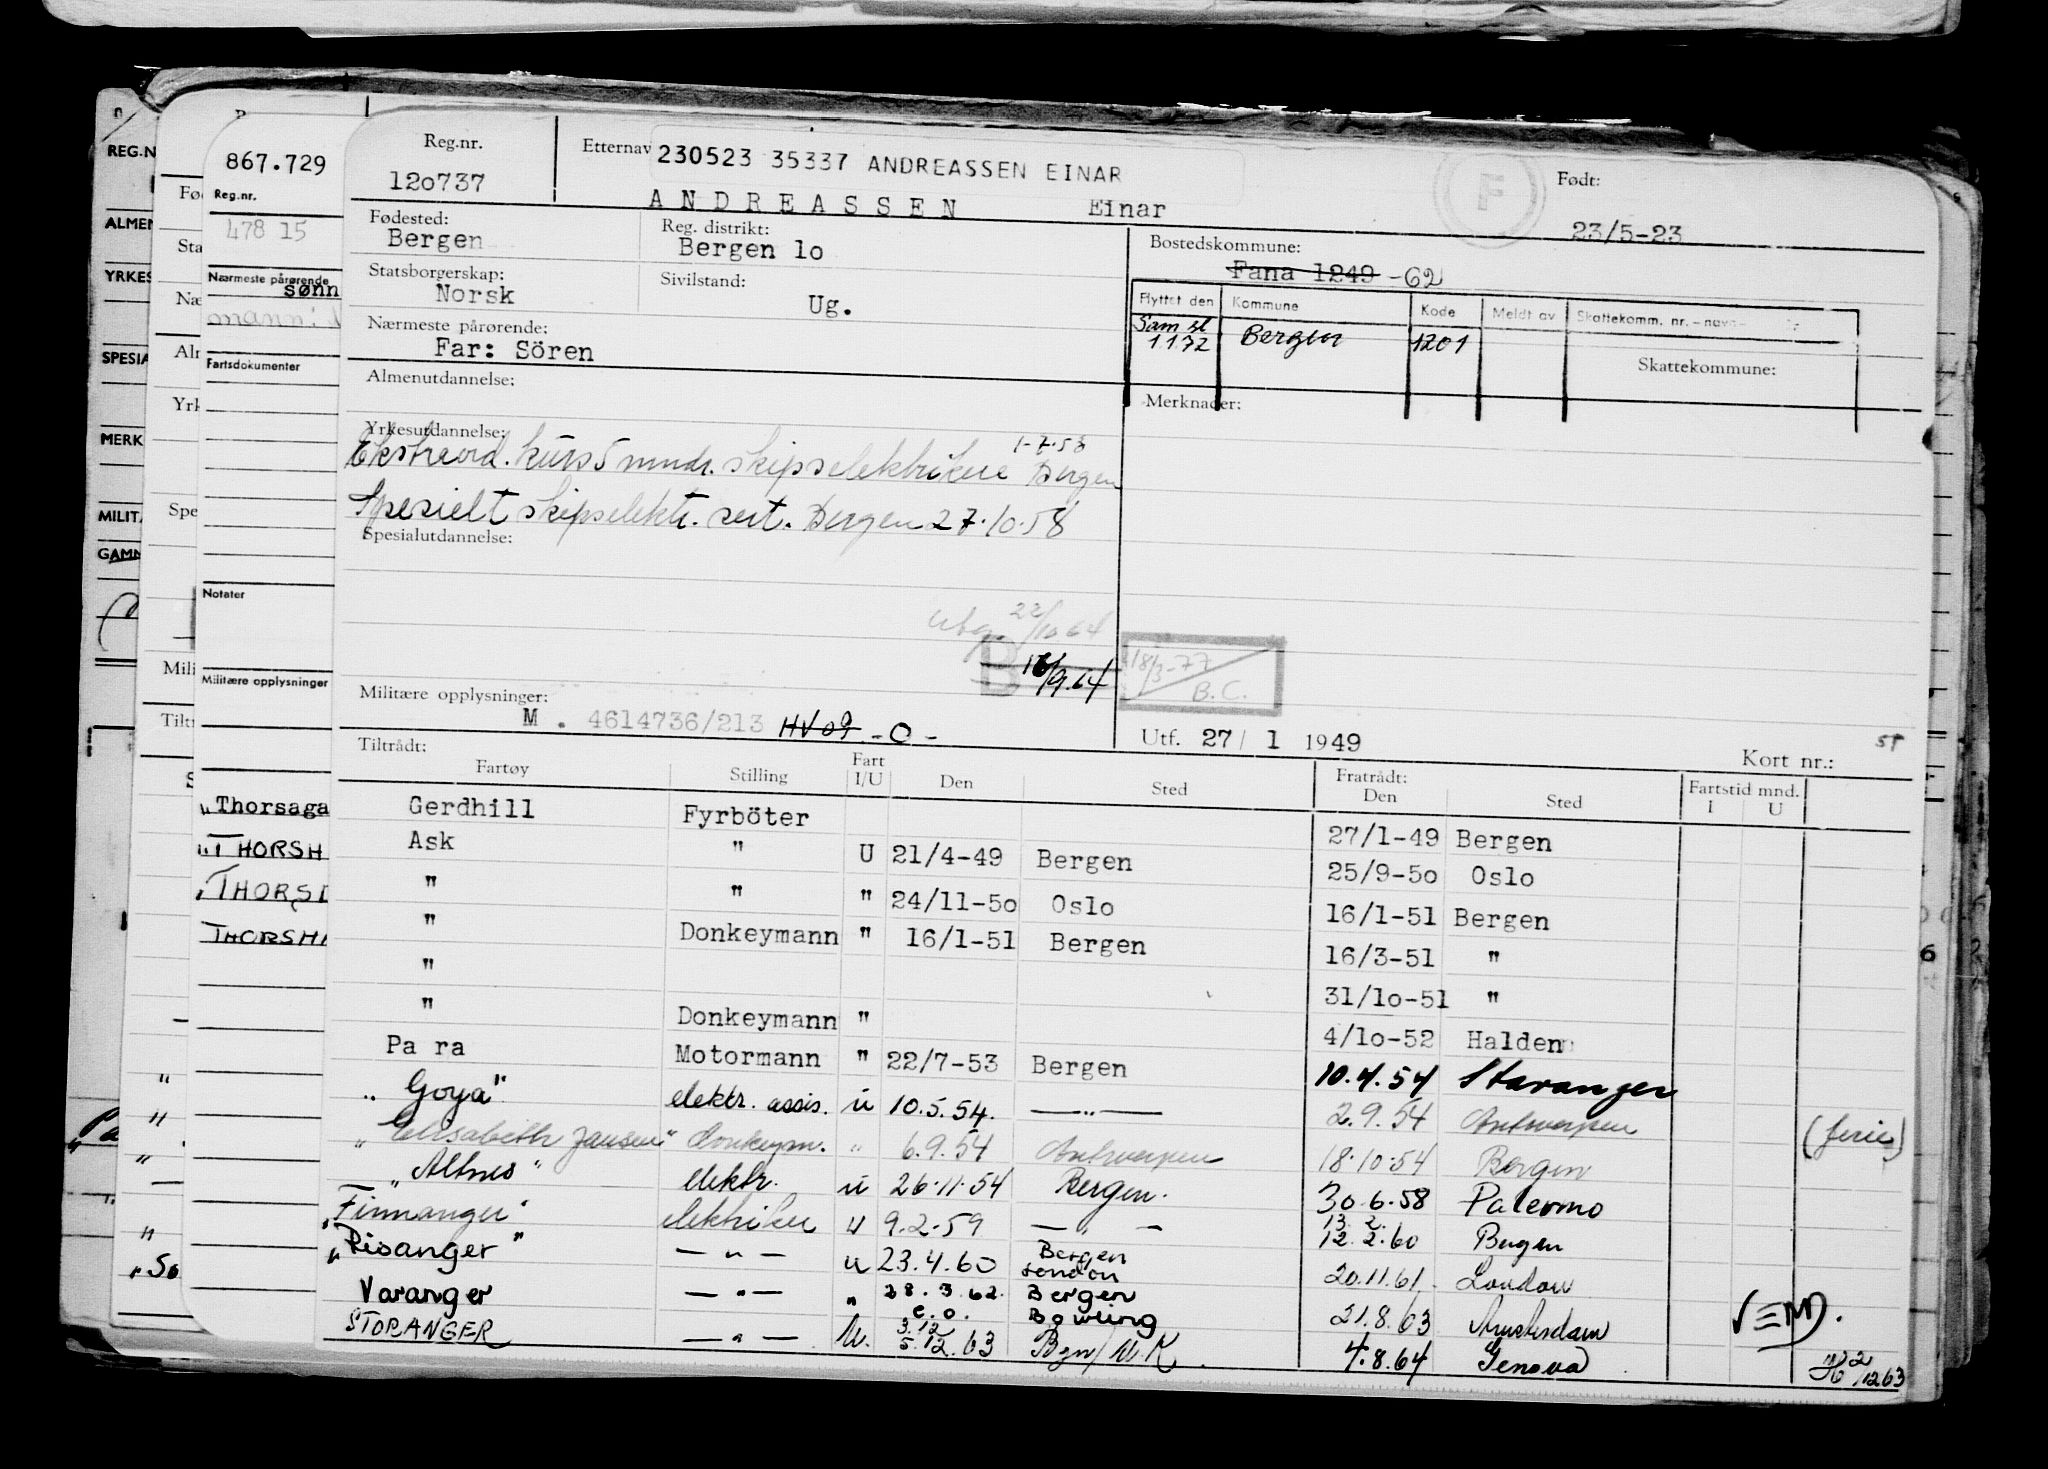 REG.N
ALMEN
YRKES
SPESIA
MERK
MILITA
GAMM
Fød
Sta
Næ
Alm
Yrk
Spe
Mili
Tiltr
867.729
Reg.nr.
478 15
Nærmeste pårørende
sønn
mann:
Fartsdokumenter
Notater
Militære opplysninger
"Thorsaga
"THORSH
"THORSD
THORSHA
"So
Reg.nr.
120737
Etternav
230523 35337 ANDREASSEN EINAR
ANDREASSEN Einar
F
Født:
23/5-23
Fødested:
Bergen
Reg. distrikt:
Bergen lo
Bostedskommune:
Fana 1249 -62
Statsborgerskap:
Norsk
Sivilstand:
Ug.
Flyttet den Kommune Kode Meldt av Skattekomm. nr. - navn-
Sam st
1172 Bergen 1201
Nærmeste pårørende:
Far: Sören
Skattekommune:
Almenutdannelse:
Merknader:
Yrkesutdannelse:
1-7-58
Ekstraord. kurs 5 mndr. skipselektrikere Bergen
Spesielt skipselektr. sert. Bergen 27.10.58
Spesialutdannelse:
utg. 22/10 64
B 16/9.64
18/3-77
B.C.
Militære opplysninger:
M . 4614736/213 HV09 -0-
Utf. 27/ 1 1949
Kort nr.:
Tiltrådt: Fratrådt:
Fartøy Stilling Fart I/U Den Sted Den Sted Fartstid mnd. I U
Gerdhill Fyrböter 27/1-49 Bergen
Ask " U 21/4-49 Bergen 25/9-5o Oslo
" " " 24/11-5o Oslo 16/1-51 Bergen
" Donkeymann " 16/1-51 Bergen 16/3-51 "
" 31/lo-51 "
" Donkeymann " 4/lo-52 Halden
Pa ra Motormann " 22/7-53 Bergen 10.4.54 Stavanger
"Goya" elektr. assis. u 10.5.54. —"— 2.9.54 Antwerpen (ferie)
"Elisabeth Jansen" donkeym. " 6.9.54 Antwerpen 18.10.54 Bergen
"Altnes" elektr. u 26.11.54 Bergen. 30.6.58 Palermo
"Finnanger" elektriker u 9.2.59 —"— 13.2.
12.2.60 Bergen
"Risanger" —"— u 23.4.60 Bergen
London 20.11.61. London
Varanger —"— " 28.3.62. Bergen
e.o. Bowling 21.8.63 Amsterdam VEND.
STORANGER —"— U. 3.12
5.12.63 Bgn/U.K. 4.8.64 Genova